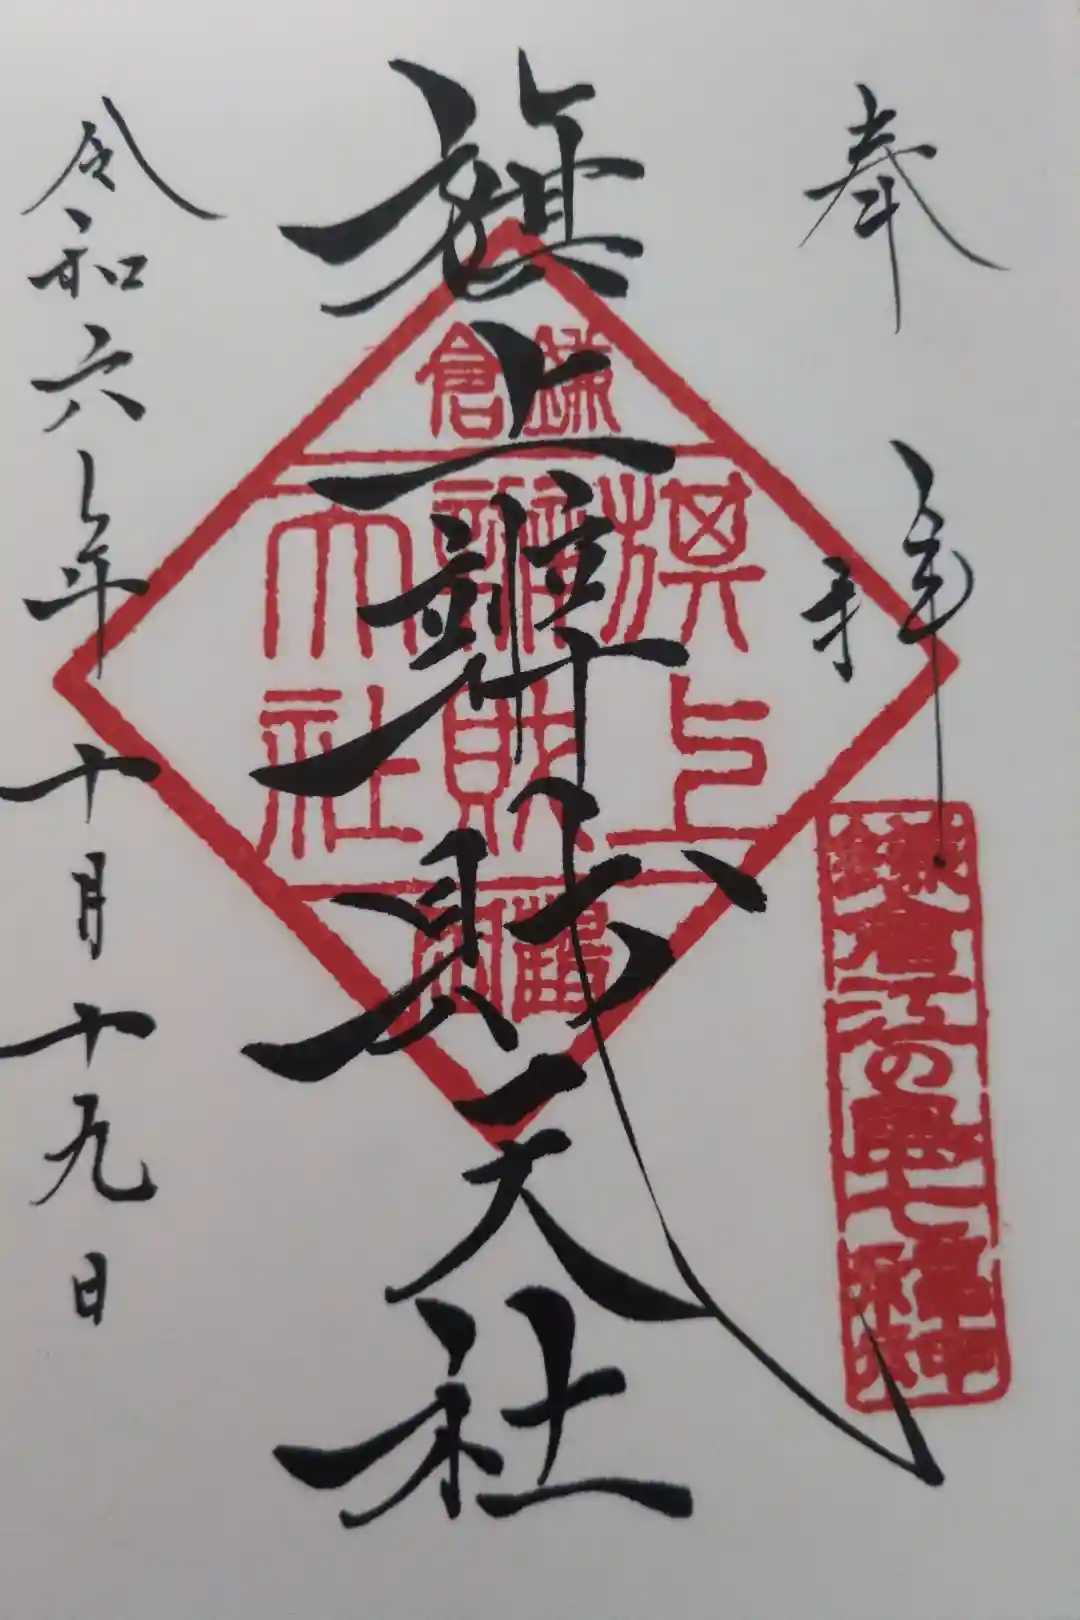 奉拝
鎌倉江の島七福神
旗上辨財天社
鎌倉
旗上
辨財
天社
令和六年十月十九日